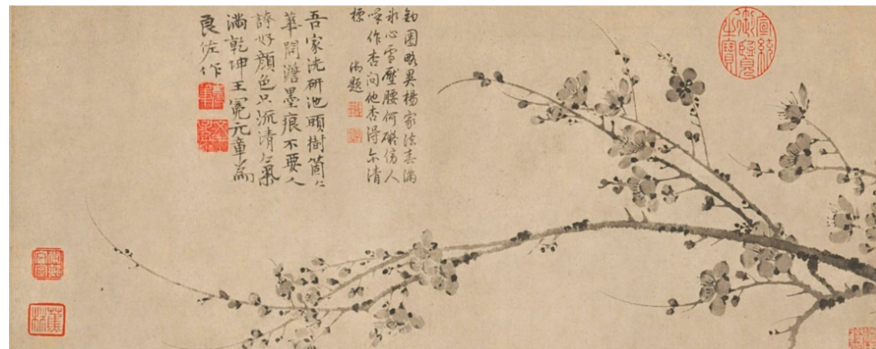 宣統御覽之寶
鈎圈略異楊家法春滿
冰心雪壓腰何礙傍人
喚作杏問他杏得尔清
標 御題
吾家洗研池頭樹箇〻
華開澹墨痕不要人
誇好顏色只流清氣
滿乾坤王冕元章為
良佐作